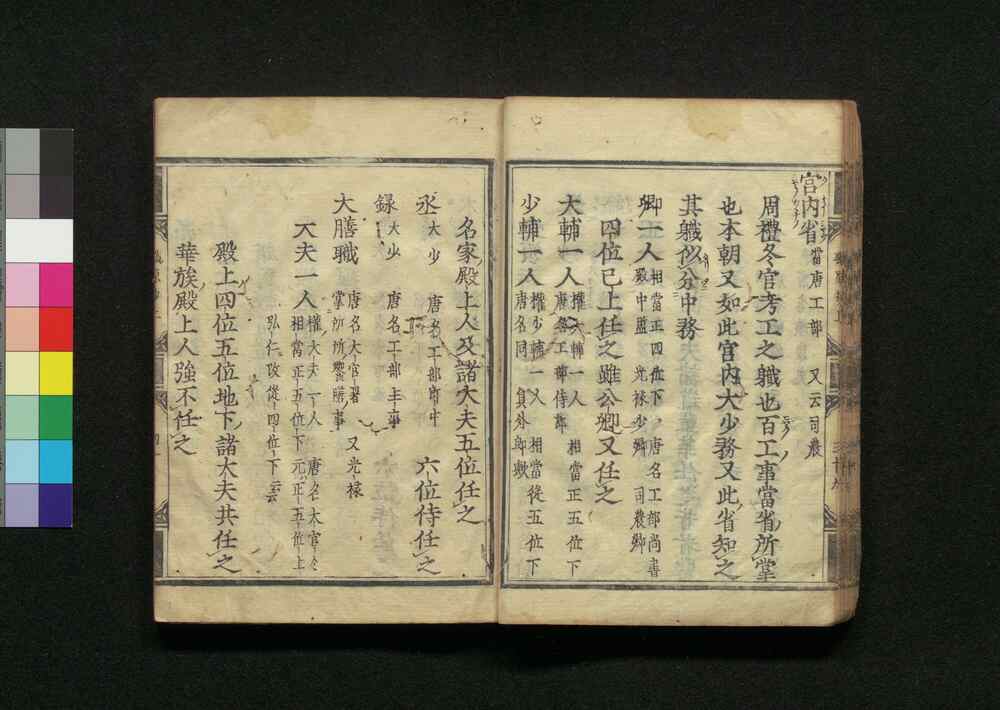 宮内省 當唐工部 又云司農
周禮冬官考工之職也百工事當省所掌
也本朝又如此宮内大少務又此省知之
其職似分中務
卿一人 相當正四位下 唐名工部尚書
殿中監 光禄少卿 司農卿
四位已上任之雖公卿又任之
大輔一人 權大輔一人 相當正五位下
唐名工部侍郎
少輔一人 權少輔一人 相當從五位下
唐名同 員外郎
名家殿上人及諸大夫五位任之
丞 大少 唐名工部郎中 六位侍任之
録 大少 唐名工部主事
大膳職 唐名大官署 又光禄
掌所所饗膳事
大夫一人 權大夫一人 唐名大官令
相當正五位下 元正五位上
弘仁改從四位下云云
殿上四位五位地下諸大夫共任之
華族殿上人強不任之